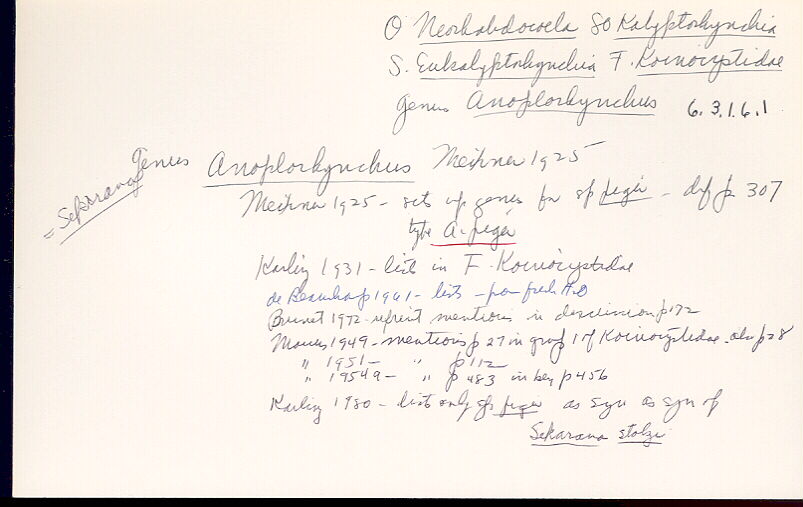 O Neorhabdocoela SO Kalyptorhynchia
S. Eukalyptorhynchia F. Koinocystidae
genus Anoplorhynchus 6.3.1.6.1
genus Anoplorhynchus Meixner 1925
= Sekarana
Meixner 1925 - sets up genus for sp piger - def p 307
type A. piger
Karling 1931 - lists in F. Koinocystidae
de Beauchamp 1961 - lists - from fresh H2O
Brunet 1972 - reprint mentions in discussion p 172
Marcus 1949 - mentions p 27 in group 1 of Koinocystidae. also p 28
" 1951 - " p 112
" 1954a - " p 483 in key p 456
Karling 1980 - lists only sp piger as syn as syn of
Sekarana stolzi